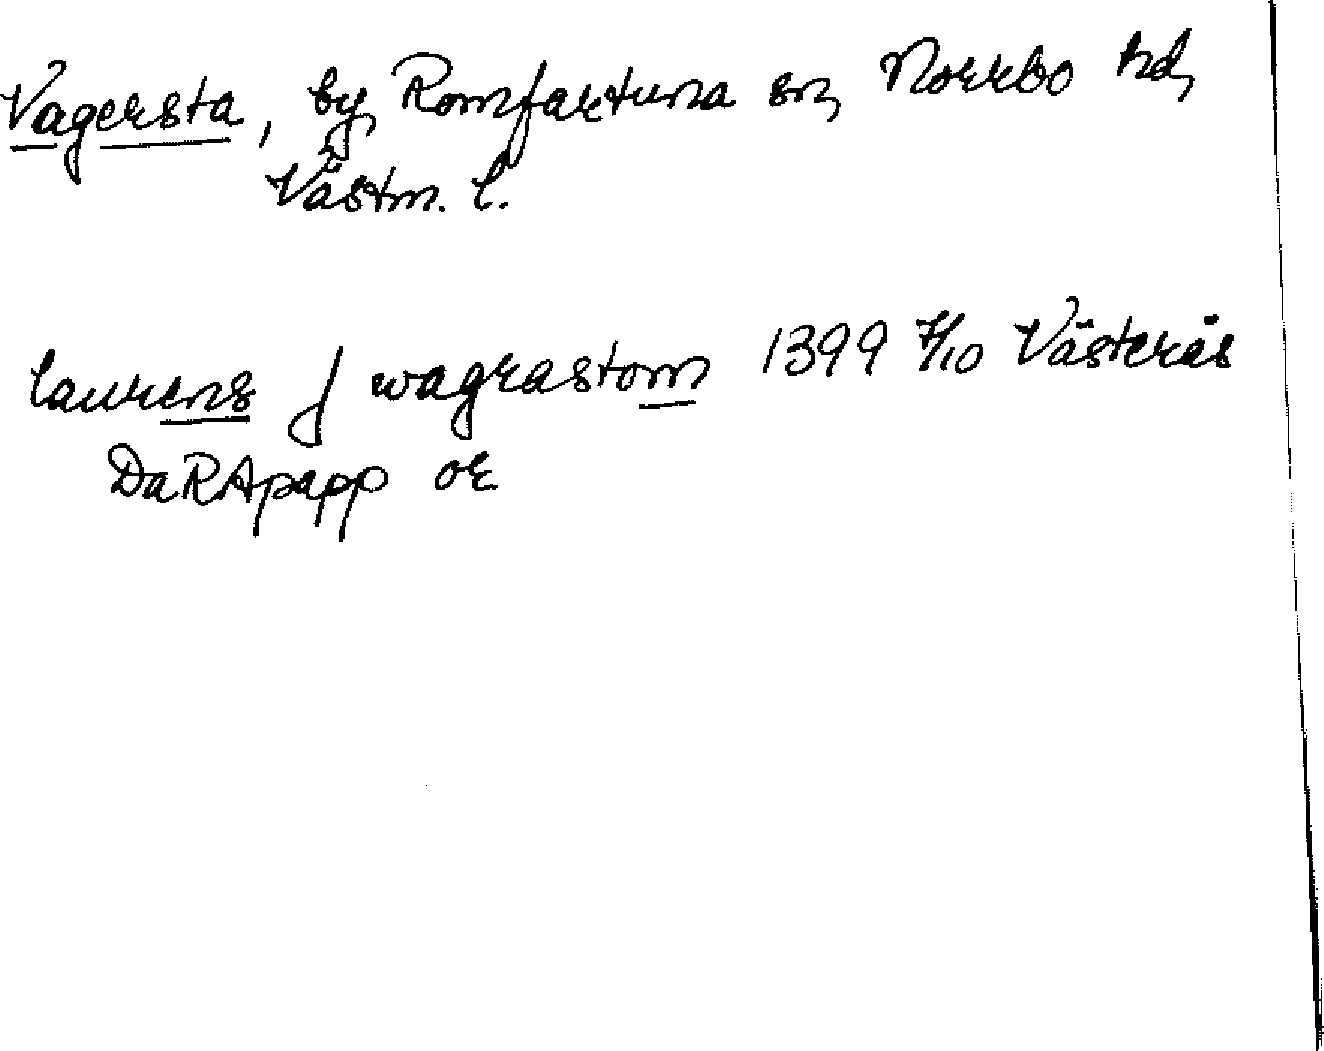 Vagersta, by, Romfartuna sn, Norrbo hd,
Västm. l.
laurens j wagrastom 1399 7/10 Västerås
DaRApapp or